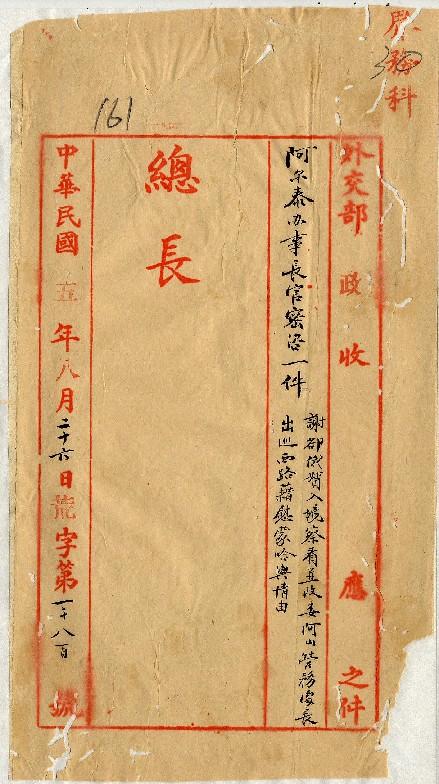 務科
30
161
外交部 政 收 應 之件
阿尔泰办事長官密咨一件
謝卻俄督入境察看並改委阿山營務處長
出巡西路藉慰蒙哈輿情由
總長
中華民國五年八月二十六日荒字第一千八百 號